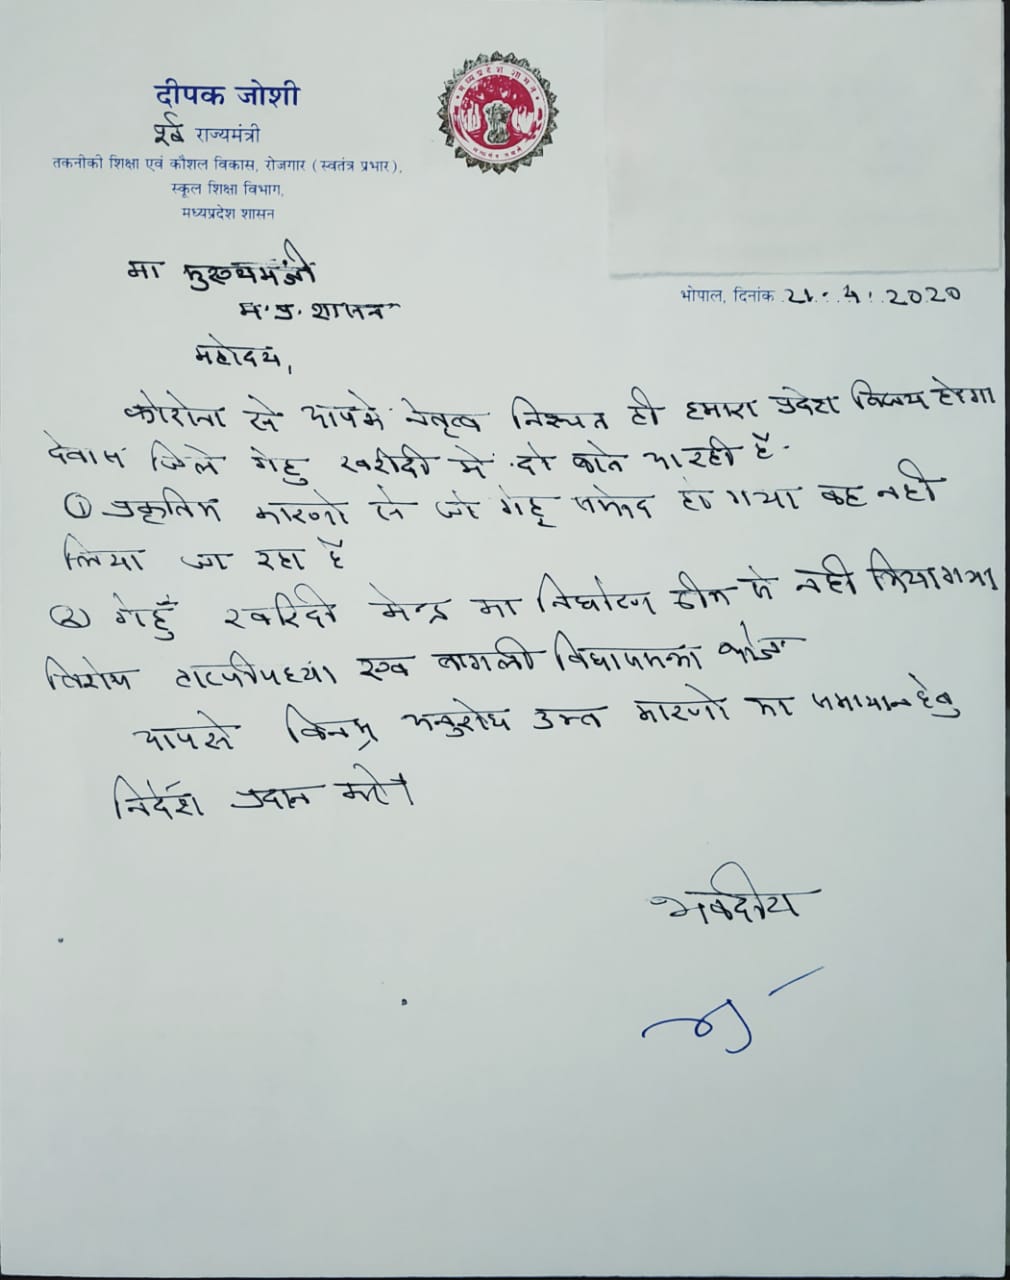 दीपक जोशी
पूर्व राज्यमंत्री
तकनीकी शिक्षा एवं कौशल विकास, रोजगार (स्वतंत्र प्रभार),
स्कूल शिक्षा विभाग,
मध्यप्रदेश शासन
मध्यप्रदेश शासन
सत्यमेव जयते
भोपाल, दिनांक 21.4.2020
मा मुख्यमंत्री
म.प्र. शासन
महोदय,
कोरोना से आपके नेतृत्व निश्चत ही हमारा प्रदेश विजय होगा
देवास जिले गेहु खरीदी मे दो बाते आ रही है
① प्रकृतिक कारणो से जो गेहू सफेद हो गया वह नही
लिया जा रहा है
② गेहुँ खरिदी केन्द्र का निर्धारण ठीक से नही किया गया
विशेष हाटपीपल्या एवं बागली विधानसभा
आपसे विनम्र अनुरोध उक्त कारणो का समाधान हेतु
निर्देश प्रदान करे।
भवदीय